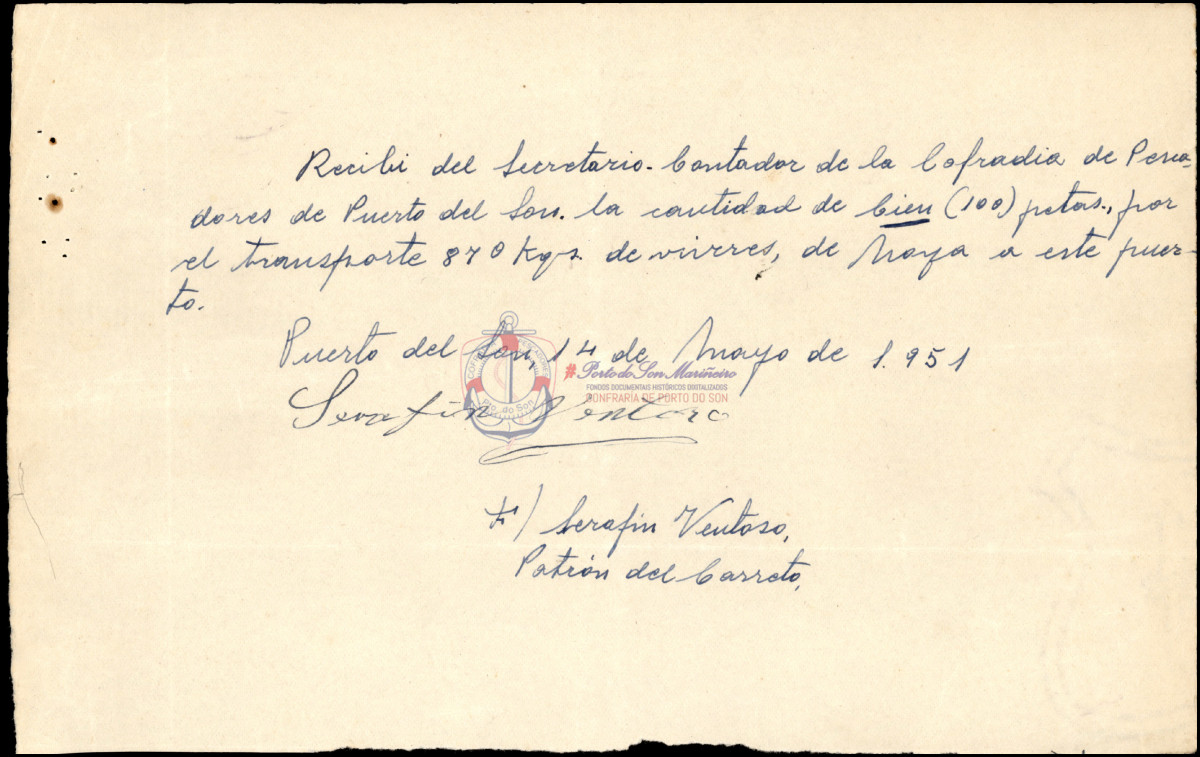 Recibí del Secretario-Contador de la Cofradia de Pesca-
dores de Puerto del Son. la cantidad de Cien (100) ptas., por
el transporte 870 Kgs. de viveres, de Noya a este puer-
to.
Puerto del Son, 14 de Mayo de 1.951
#Porto do Son Mariñeiro
FONDOS DOCUMENTAIS HISTÓRICOS DIXITALIZADOS
CONFRARÍA DE PORTO DO SON
Pto. do Son
Serafin Ventoso
F/ Serafin Ventoso,
Patrón del Carreto,